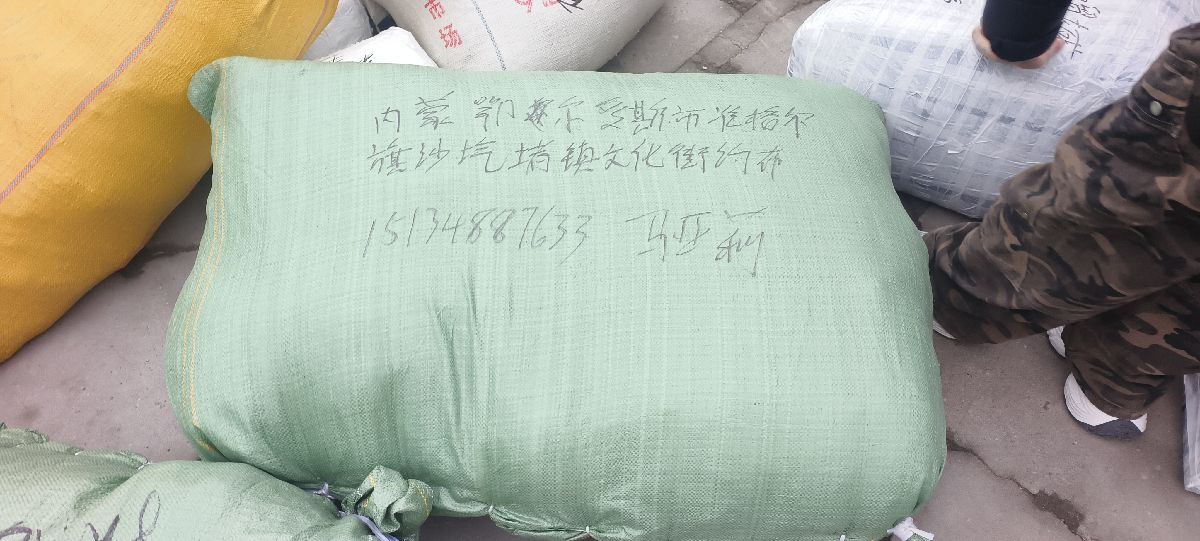 市场
内蒙鄂尔多斯市准格尔
旗沙圪堵镇文化街约布
15134887633 马亚莉